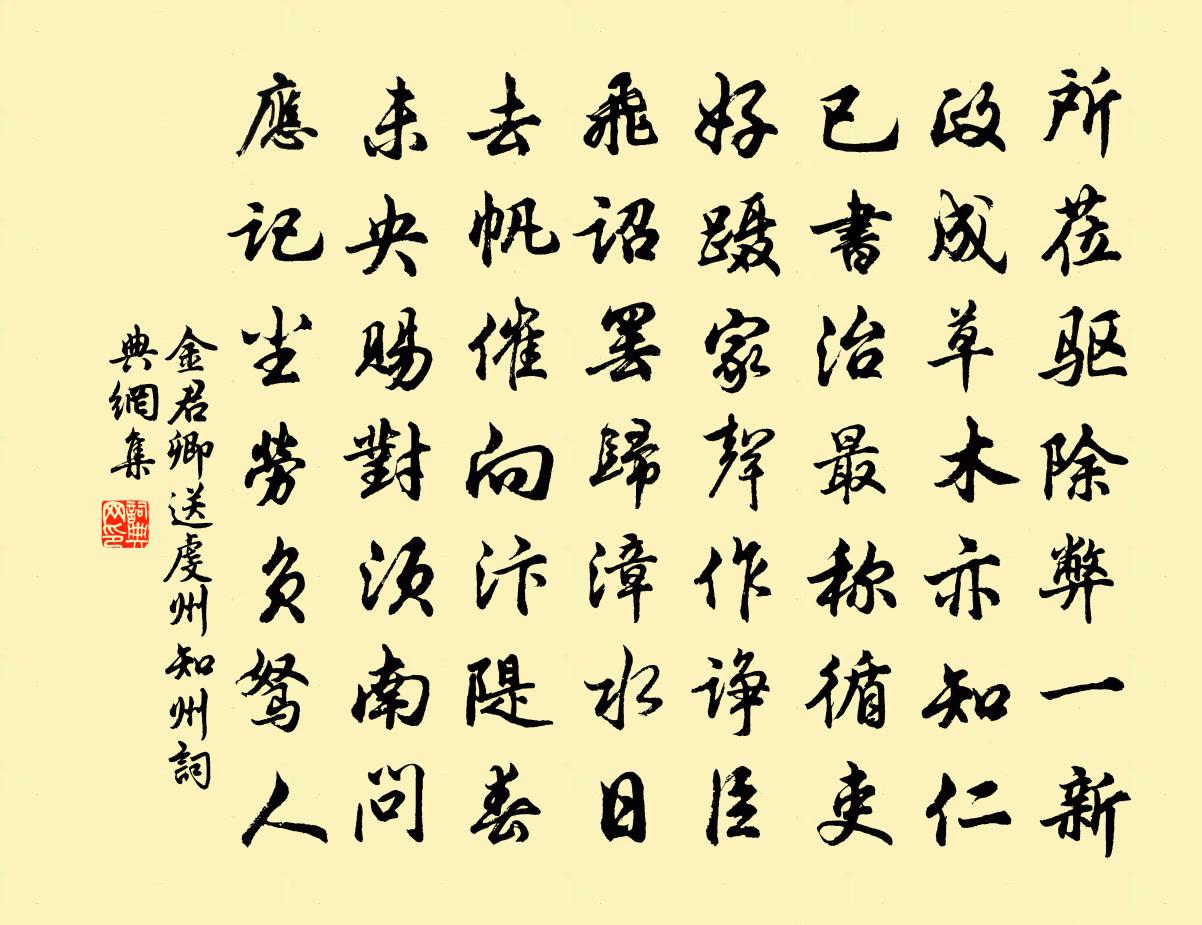 所莅驱除弊一新
政成草木亦知仁
已書治最称循吏
好蹑家聲作诤臣
飛詔罢歸漳水日
去帆催向汴隄春
未央賜對須南问
應记尘勞负駑人
金君卿送虔州知州詞
典網集
詞典网印